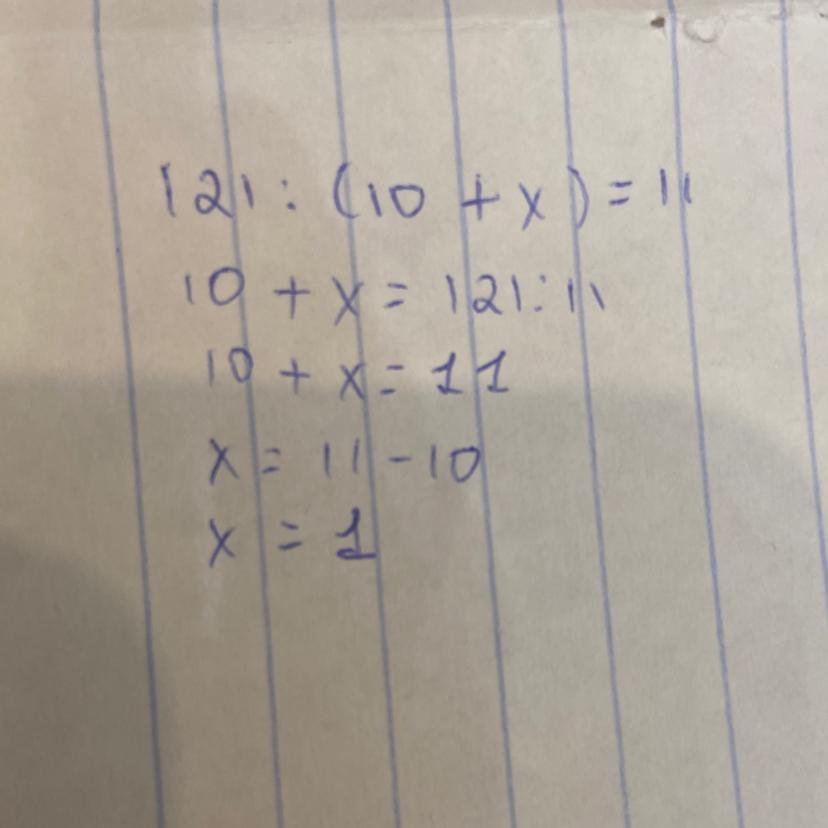 121 : (10 + x) = 11
10 + x = 121 : 11
10 + x = 11
x = 11 - 10
x = 1